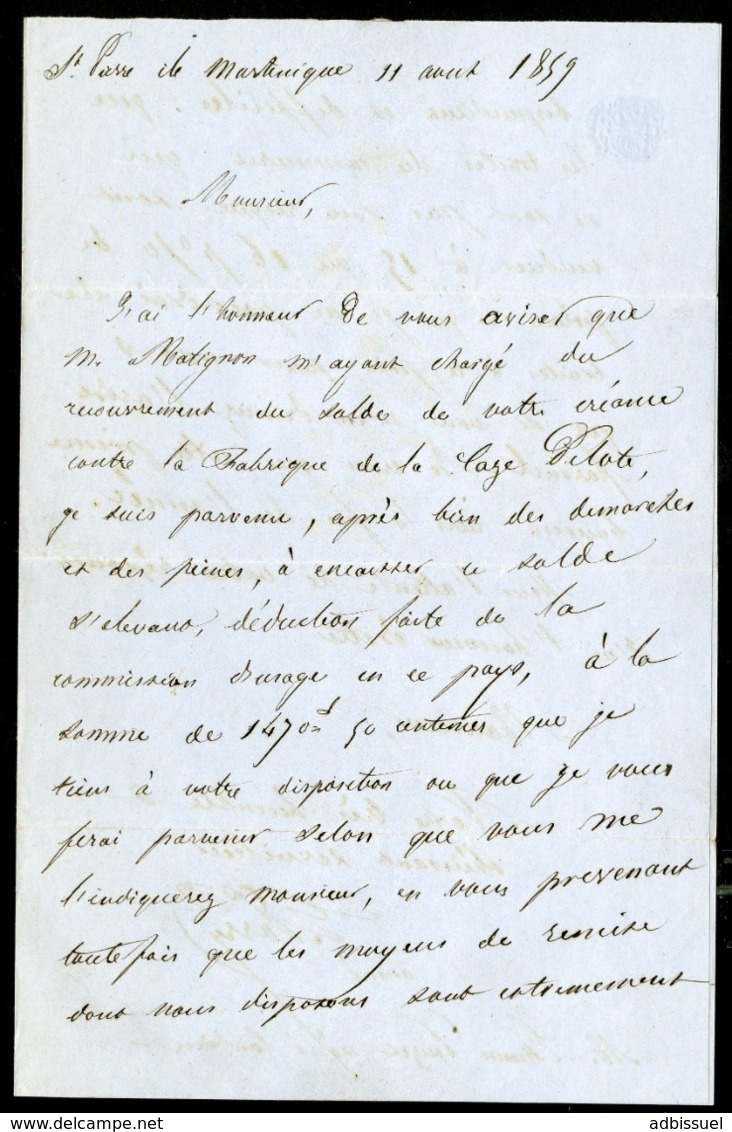 St. Pierre ile Martinique 11 aout 1859
Monsieur,
J'ai l'honneur De vous aviser que
M. Matignon m'ayant chargé du
recouvrement du solde de votre créance
contre la Fabrique de la Case Pilote,
je suis parvenu, après bien des demarches
et des peines, à encaisser ce solde
s'elevant, déduction faite de la
commission d'usage en ce pays, à la
somme de 1470 f 50 centimes que je
tiens à votre disposition ou que je vous
ferai parvenir selon que vous me
l'indiquerez monsieur, en vous prevenant
toutefois que les moyens de remise
dont nous disposons sont extremement
adbissuel